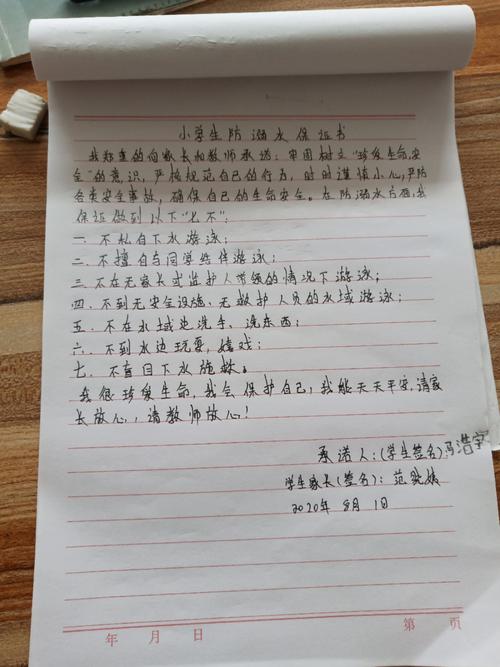 小学生防溺水保证书
我郑重的向家长和教师承诺：牢固树立"珍爱生命，安
全"的意识，严格规范自己的行为，时时谨慎小心，严防
各类安全事故，确保自己的生命安全。在防溺水方面，我
保证做到以下"七不"：
一、不私自下水游泳；
二、不擅自与同学结伴游泳；
三、不在无家长或监护人带领的情况下游泳；
四、不到无安全设施、无救护人员的水域游泳；
五、不在水域边洗手、洗东西；
六、不到水边玩耍，嬉戏；
七、不盲目下水施救。
我很珍爱生命，我会保护自己，我能天天平安，请家
长放心，请教师放心！
承诺人：(学生签名)冯浩宇
学生家长(签名)：范
2020年8月1日
年 月 日 第 页